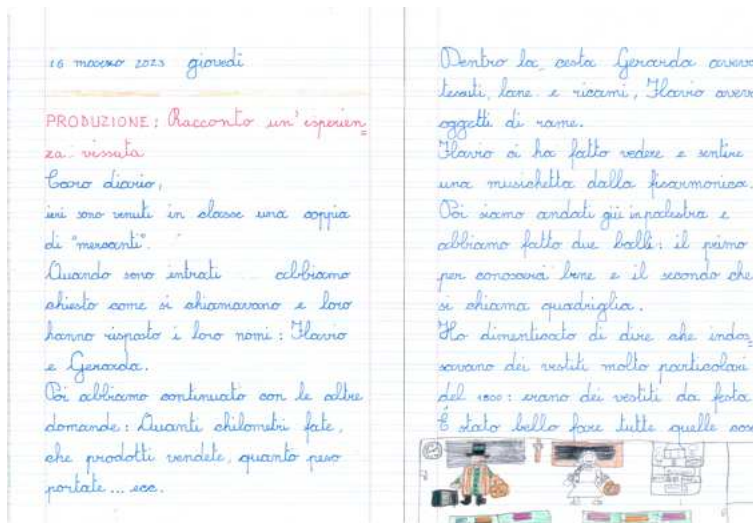 16 marzo 2023 giovedì
PRODUZIONE: Racconto un'esperien=
za vissuta
Caro diario,
ieri sono venuti in classe una coppia
di "mercanti".
Quando sono entrati abbiamo
chiesto come si chiamavano e loro
hanno risposto i loro nomi: Flavio
e Gerarda.
Poi abbiamo continuato con le altre
domande: Quanti chilometri fate,
che prodotti vendete, quanto peso
portate... ecc.
Dentro la cesta Gerarda aveva
tessuti, lane e ricami, Flavio aveva
oggetti di rame.
Flavio ci ha fatto vedere e sentire
una musichetta dalla fisarmonica.
Poi siamo andati giù in palestra e
abbiamo fatto due balli: il primo
per conoscerci bene e il secondo che
si chiama quadriglia.
Ho dimenticato di dire che indos=
savano dei vestiti molto particolari
del 1800: erano dei vestiti da festa
È stato bello fare tutte quelle cose